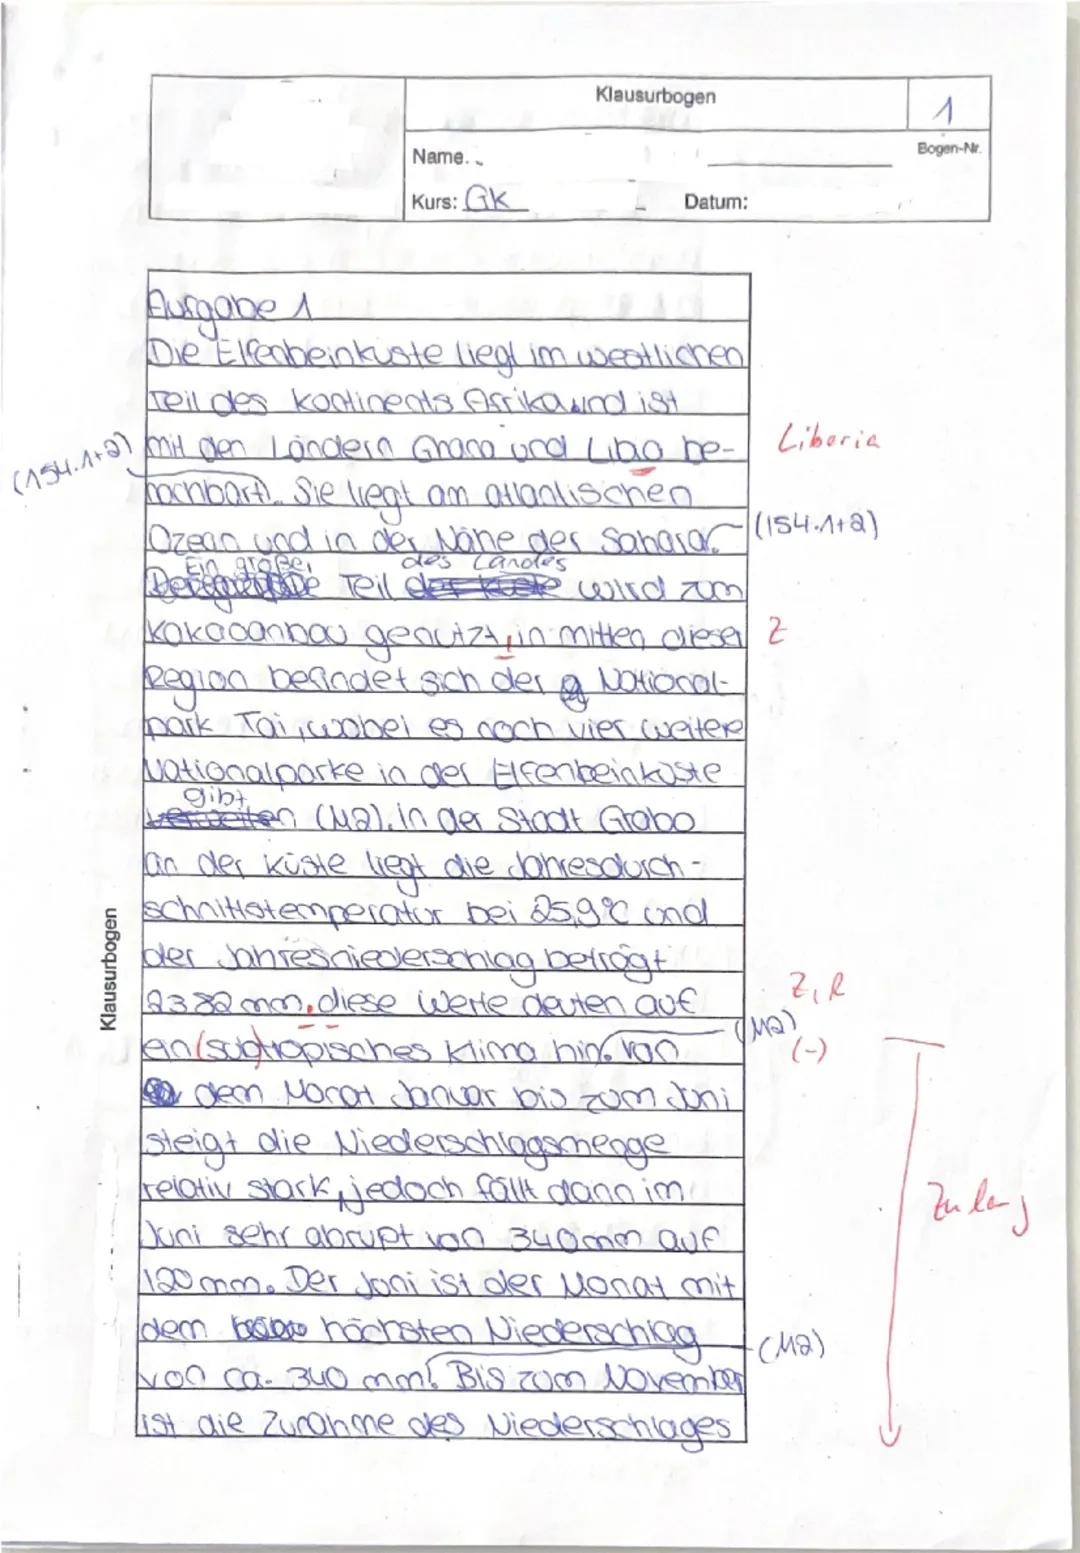 Klausurbogen
1
Name.
Bogen-Nr.
Kurs: GK
Datum:
Aufgabe 1
Die Elfenbeinküste liegt im westlichen
Teil des Kontinents Afrika und ist
(154.1+2) mit den Ländern Ghana und Libia be- Liberia
nachbart. Sie liegt am atlantischen
Ozean und in der Nähe der Sahara. (154.1+2)
Ein großer Teil des Landes wird zum
Kakaoanbau genutzt, in mitten dieser Z
Region befindet sich der National-
park Tai, wobei es noch vier weitere
Nationalparke in der Elfenbeinküste
gibt (M2). In der Stadt Grabo
an der Küste liegt die Jahresdurch-
schnittstemperatur bei 25,9°C und
der Jahresniederschlag beträgt
2382 mm, diese Werte deuten auf Z, R
ein (sub)tropisches Klima hin. Von (M2) (-)
dem Monat Januar bis zum Juni
steigt die Niederschlagsmenge
relativ stark, jedoch fällt dann im Zu lang
Juni sehr abrupt von 340mm auf
120mm. Der Juni ist der Monat mit
dem höchsten Niederschlag
von ca. 340 mm. Bis zum November (M2)
ist die Zunahme des Niederschlages
Klausurbogen